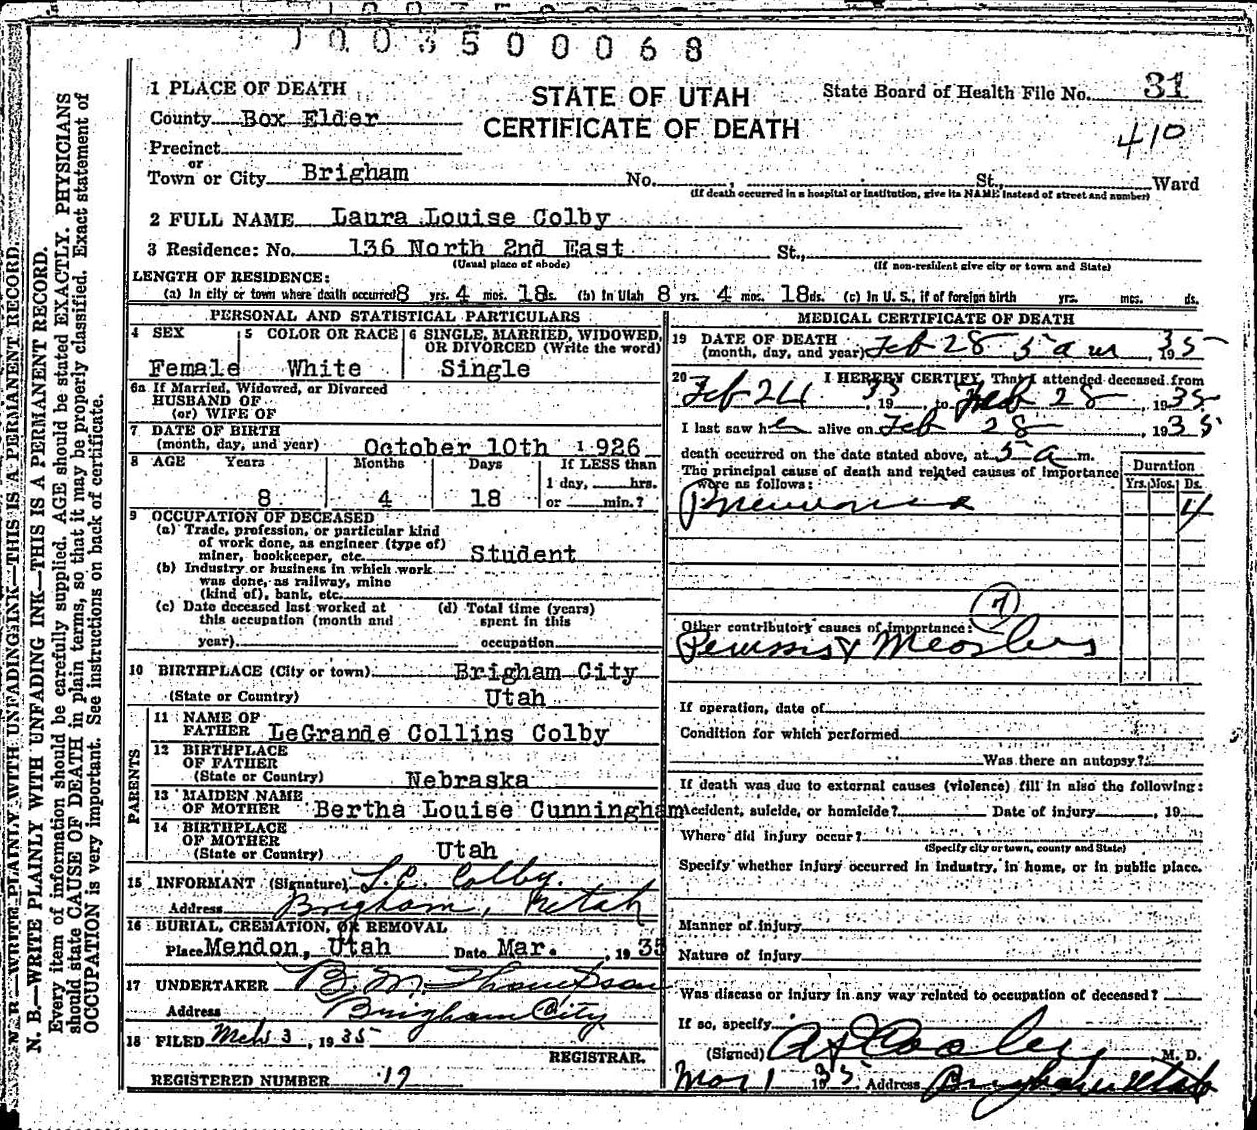 1003500068
1 PLACE OF DEATH
STATE OF UTAH
CERTIFICATE OF DEATH
State Board of Health File No. 31
410
County Box Elder
Precinct
or
Town or City Brigham No. , St., Ward
(If death occurred in a hospital or institution, give its NAME instead of street and number)
2 FULL NAME Laura Louise Colby
3 Residence: No. 136 North 2nd East St.,
(Usual place of abode) (If non-resident give city or town and State)
LENGTH OF RESIDENCE:
(a) In city or town where death occurred 8 yrs. 4 mos. 18 ds. (b) In Utah 8 yrs. 4 mos. 18 ds. (c) In U. S., if of foreign birth yrs. mos. ds.
PERSONAL AND STATISTICAL PARTICULARS
4 SEX
Female
5 COLOR OR RACE
White
6 SINGLE, MARRIED, WIDOWED,
OR DIVORCED (Write the word)
Single
6a If Married, Widowed, or Divorced
HUSBAND OF
(or) WIFE OF
7 DATE OF BIRTH
(month, day, and year) October 10th 1926
8 AGE Years Months Days If LESS than
1 day, hrs.
8 4 18 or min.?
9 OCCUPATION OF DECEASED
(a) Trade, profession, or particular kind
of work done, as engineer (type of)
miner, bookkeeper, etc. Student
(b) Industry or business in which work
was done, as railway, mine
(kind of), bank, etc.
(c) Date deceased last worked at
this occupation (month and
year)
(d) Total time (years)
spent in this
occupation
10 BIRTHPLACE (City or town) Brigham City
(State or Country) Utah
PARENTS
11 NAME OF
FATHER LeGrande Collins Colby
12 BIRTHPLACE
OF FATHER
(State or Country) Nebraska
13 MAIDEN NAME
OF MOTHER Bertha Louise Cunningham
14 BIRTHPLACE
OF MOTHER
(State or Country) Utah
15 INFORMANT (Signature) L.C. Colby.
Address Brigham, Utah
16 BURIAL, CREMATION, OR REMOVAL
Place Mendon, Utah Date Mar. , 1935
17 UNDERTAKER B. M. Thompson
Address Brigham City
18 FILED Mch 3 , 1935
REGISTRAR.
REGISTERED NUMBER 17
MEDICAL CERTIFICATE OF DEATH
19 DATE OF DEATH
(month, day, and year) Feb 28 5 a m , 1935
20 I HEREBY CERTIFY, That I attended deceased from
Feb 24 , 1935 to Feb 28 , 1935
I last saw her alive on Feb 28 , 1935
death occurred on the date stated above, at 5 a m.
The principal cause of death and related causes of importance
were as follows:
Duration
Yrs. Mos. Ds.
Pneumonia 4
7
Other contributory causes of importance:
Pertussis & Measles
If operation, date of
Condition for which performed
Was there an autopsy?
If death was due to external causes (violence) fill in also the following:
Accident, suicide, or homicide? Date of injury , 19
Where did injury occur?
(Specify city or town, county and State)
Specify whether injury occurred in industry, in home, or in public place.
Manner of injury
Nature of injury
Was disease or injury in any way related to occupation of deceased?
If so, specify
(Signed) Cooley , M. D.
Mar 1 1935. Address Brigham Utah
N. B.—WRITE PLAINLY WITH UNFADING INK—THIS IS A PERMANENT RECORD.
N. B.—WRITE PLAINLY WITH UNFADING INK—THIS IS A PERMANENT RECORD.
Every item of information should be carefully supplied. AGE should be stated EXACTLY. PHYSICIANS
should state CAUSE OF DEATH in plain terms, so that it may be properly classified. Exact statement of
OCCUPATION is very important. See instructions on back of certificate.